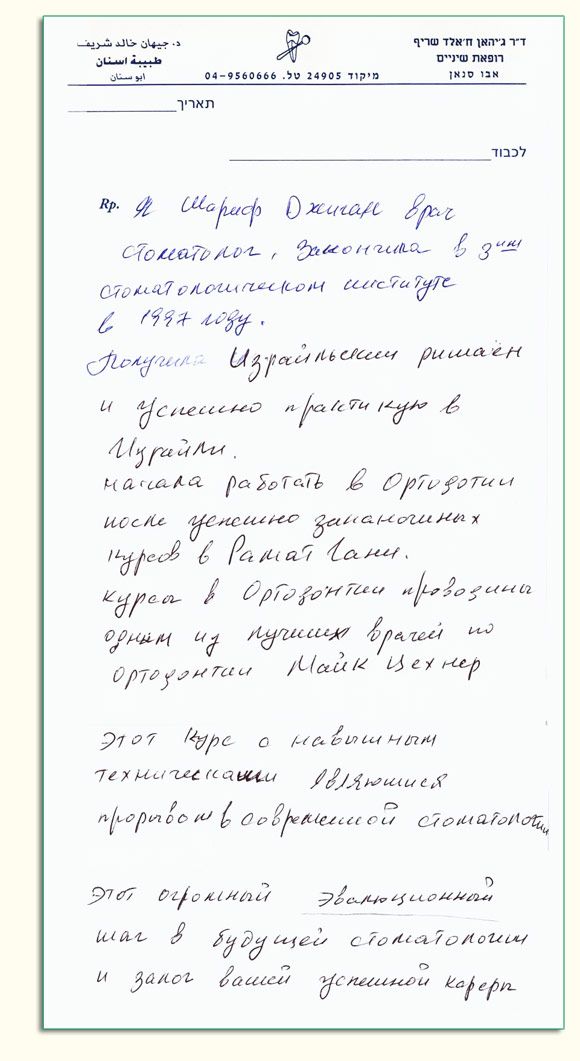 ד״ר ג׳יהאן ח׳אלד שריף
רופאת שיניים
אבו סנאן
د. جيهان خالد شريف
طبيبة اسنان
ابو سنان
מיקוד 24905 טל. 04-9560666
תאריך
לכבוד
Rp. Я Шариф Джиган врач
стоматолог, Закончила в
стоматологическом институте
в 1997 году.
Получила Израильский ришаён
и успешно практикую в
Израйли.
начала работать в Ортодотии
после успешно законочиных
курсов в Рамат Гани.
курсы в Ортодонтии проводины
одним из лучших врачей по
ортодонтии Майк Цехнер
Этот Курс с навышным
техническами Являюшися
прорывом в современной стоматологии
Этот огромный эвалюционный
шаг в будущей стоматологии
и залог вашей успешной кареры